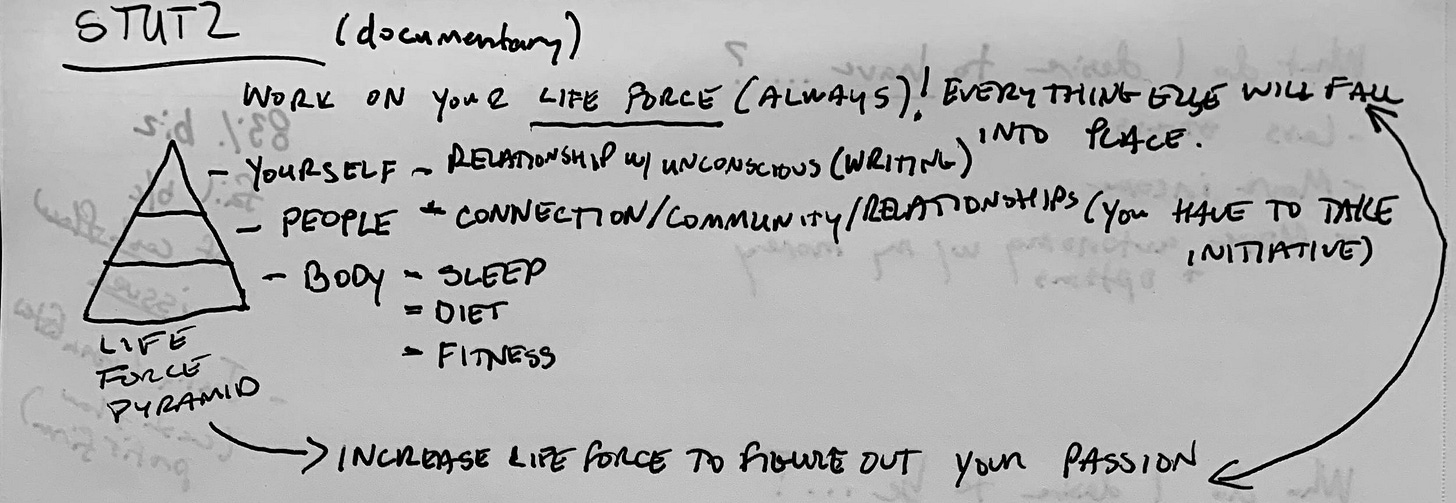 STUTZ (documentary)
WORK ON YOUR LIFE FORCE (ALWAYS)! EVERYTHING ELSE WILL FALL
INTO PLACE.
- YOURSELF - RELATIONSHIP W/ UNCONSCIOUS (WRITING)
- PEOPLE - CONNECTION/COMMUNITY/RELATIONSHIPS (YOU HAVE TO TAKE
INITIATIVE)
- BODY - SLEEP
- DIET
- FITNESS
LIFE
FORCE
PYRAMID
INCREASE LIFE FORCE TO FIGURE OUT YOUR PASSION